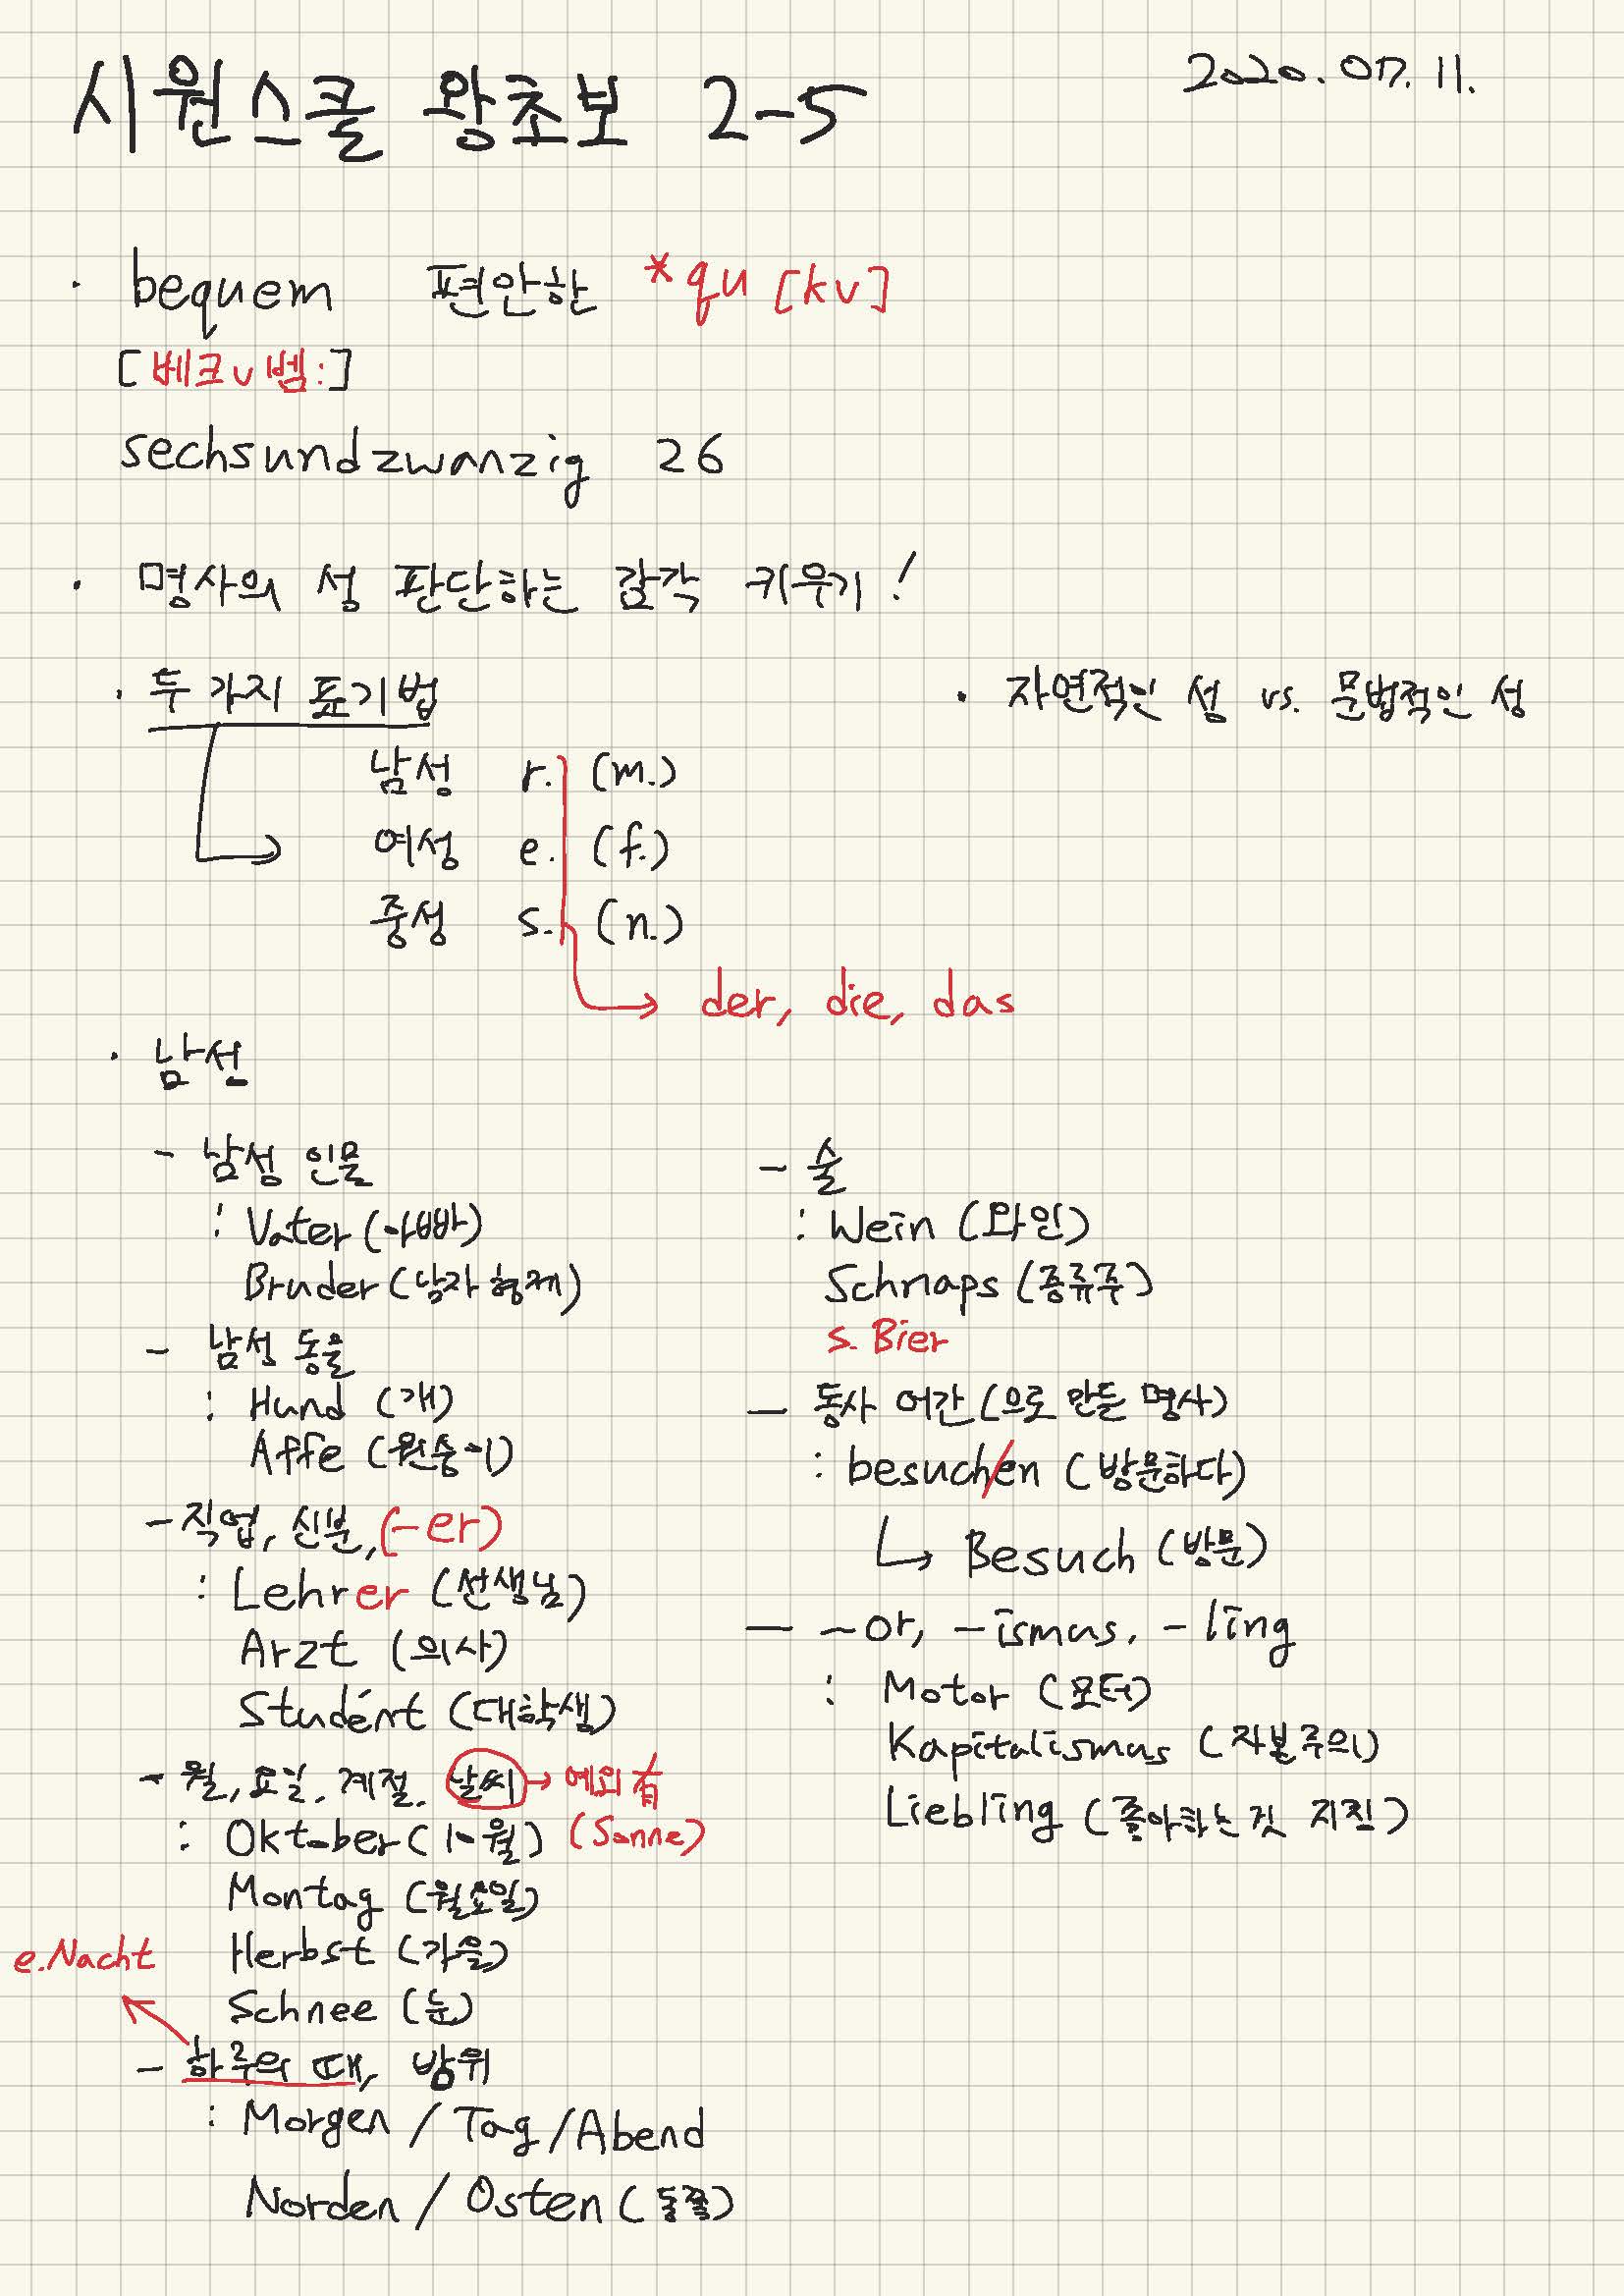 시원스쿨 왕초보 2-5
2020. 07. 11.
· bequem 편안한 *qu [kv]
[베크v벰:]
sechsundzwanzig 26
· 명사의 성 판단하는 감각 키우기!
· 두 가지 표기법
남성 r. (m.)
여성 e. (f.)
중성 s. (n.)
→ der, die, das
· 자연적인 성 vs. 문법적인 성
· 남성
- 남성 인물
: Vater (아빠)
Bruder (남자 형제)
- 남성 동물
: Hund (개)
Affe (원숭이)
- 직업, 신분, (-er)
: Lehrer (선생님)
Arzt (의사)
Studént (대학생)
- 월, 요일, 계절, 날씨 → 예외 有
: Oktober (10월) (Sonne)
Montag (월요일)
Herbst (가을)
Schnee (눈)
e. Nacht
- 하루의 때, 방위
: Morgen / Tag / Abend
Norden / Osten (동쪽)
- 술
: Wein (와인)
Schnaps (증류주)
s. Bier
- 동사 어간 (으로 만든 명사)
: besuchen (방문하다)
→ Besuch (방문)
- -or, -ismus, -ling
: Motor (모터)
Kapitalismus (자본주의)
Liebling (좋아하는 것 지칭)